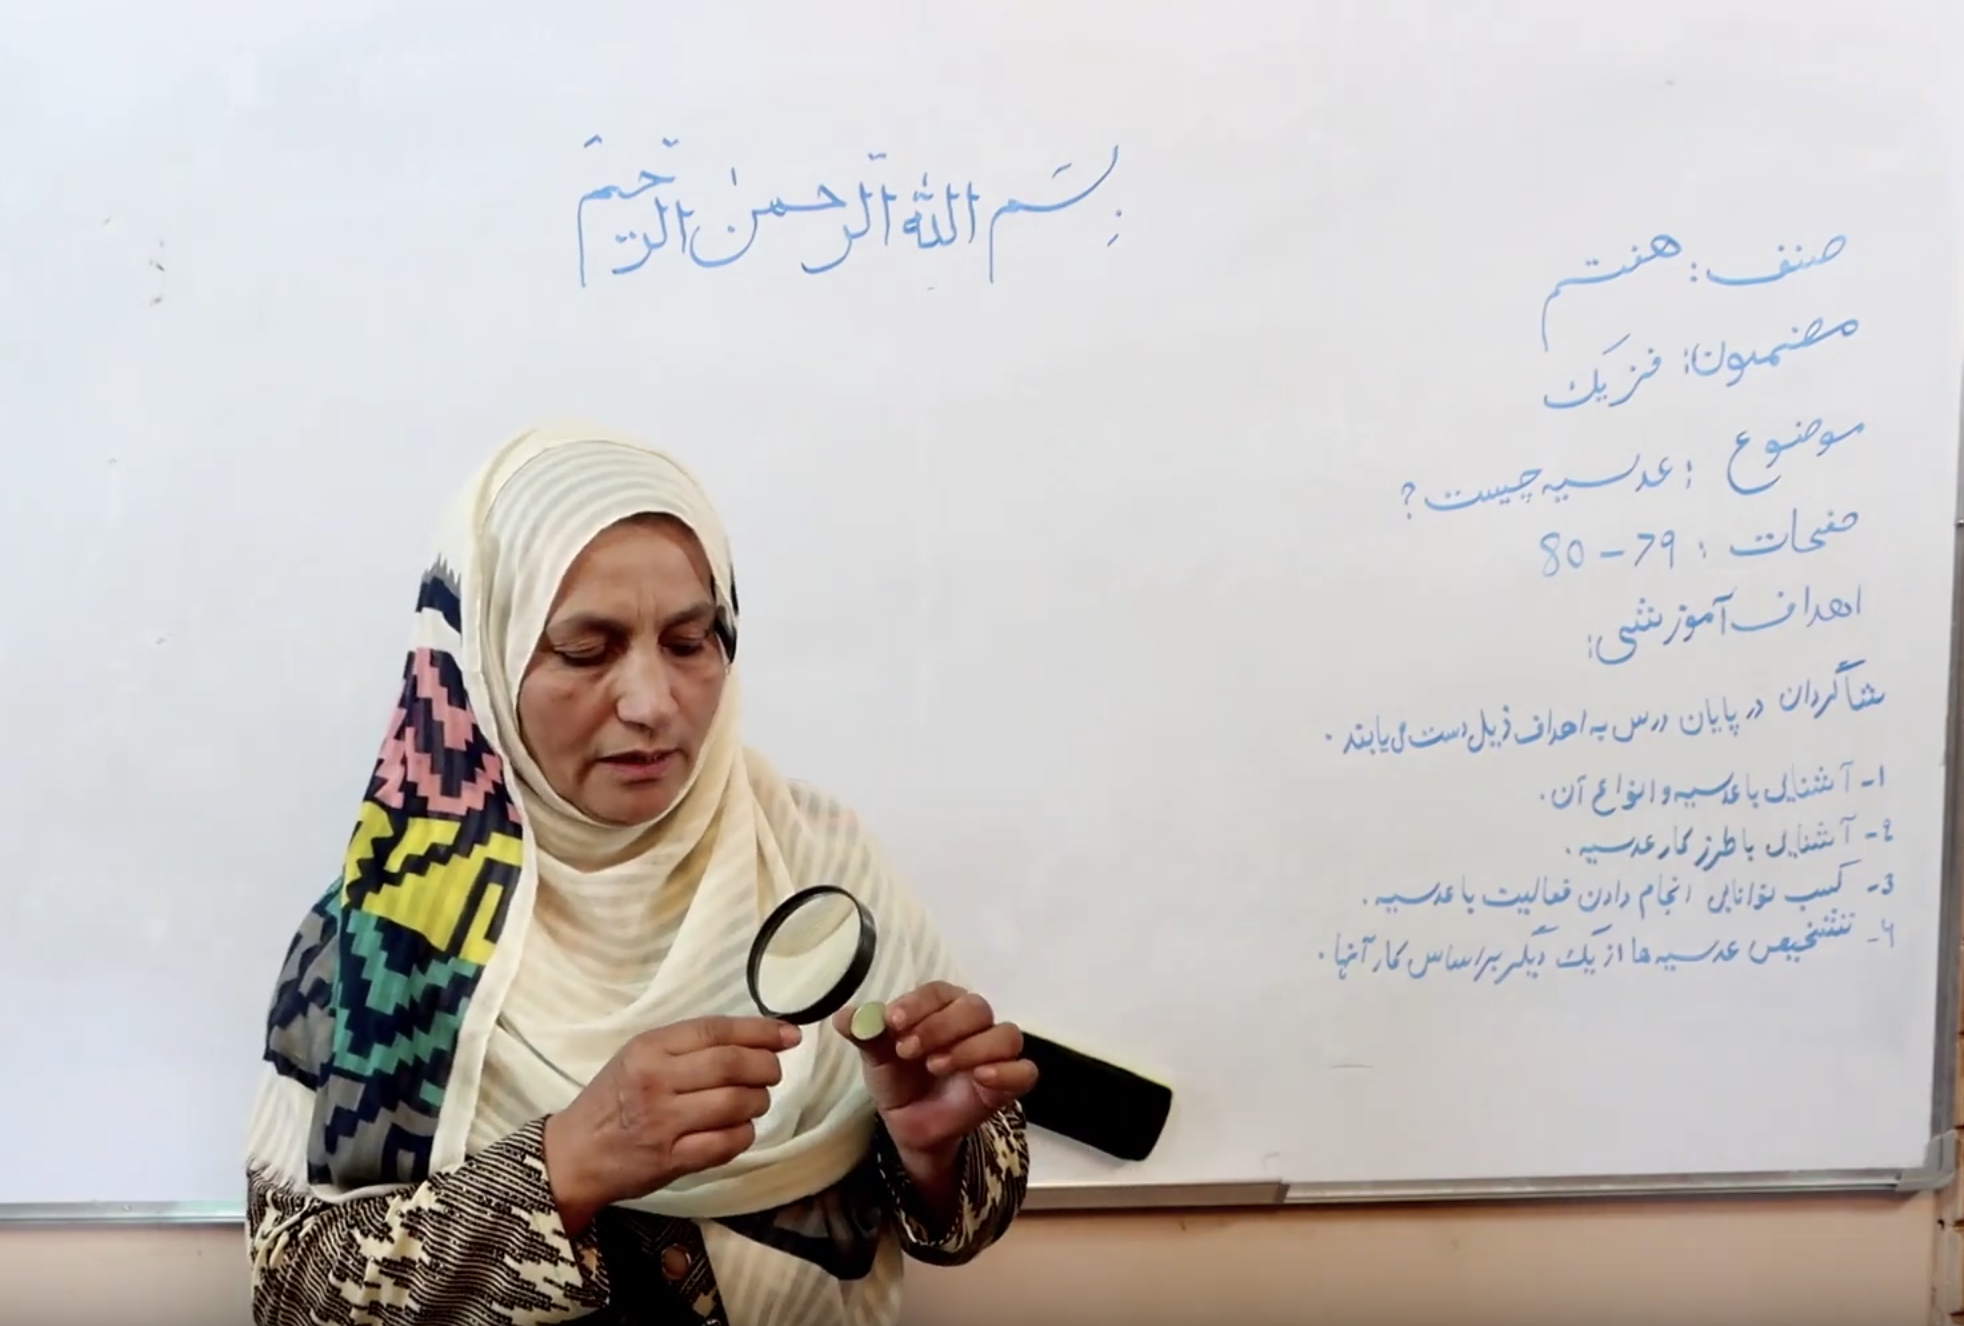 بسم الله الرحمن الرحیم
صنف: هفتم
مضمون: فزیک
موضوع: عدسیه چیست؟
صفحات: 79-80
اهداف آموزشی:
شاگردان در پایان درس به اهداف ذیل دست می‌یابند.
1- آشنایی با عدسیه و انواع آن.
2- آشنایی با طرز کار عدسیه.
3- کسب توانایی انجام دادن فعالیت با عدسیه.
4- تشخیص عدسیه ها از یک دیگر بر اساس کار آنها.